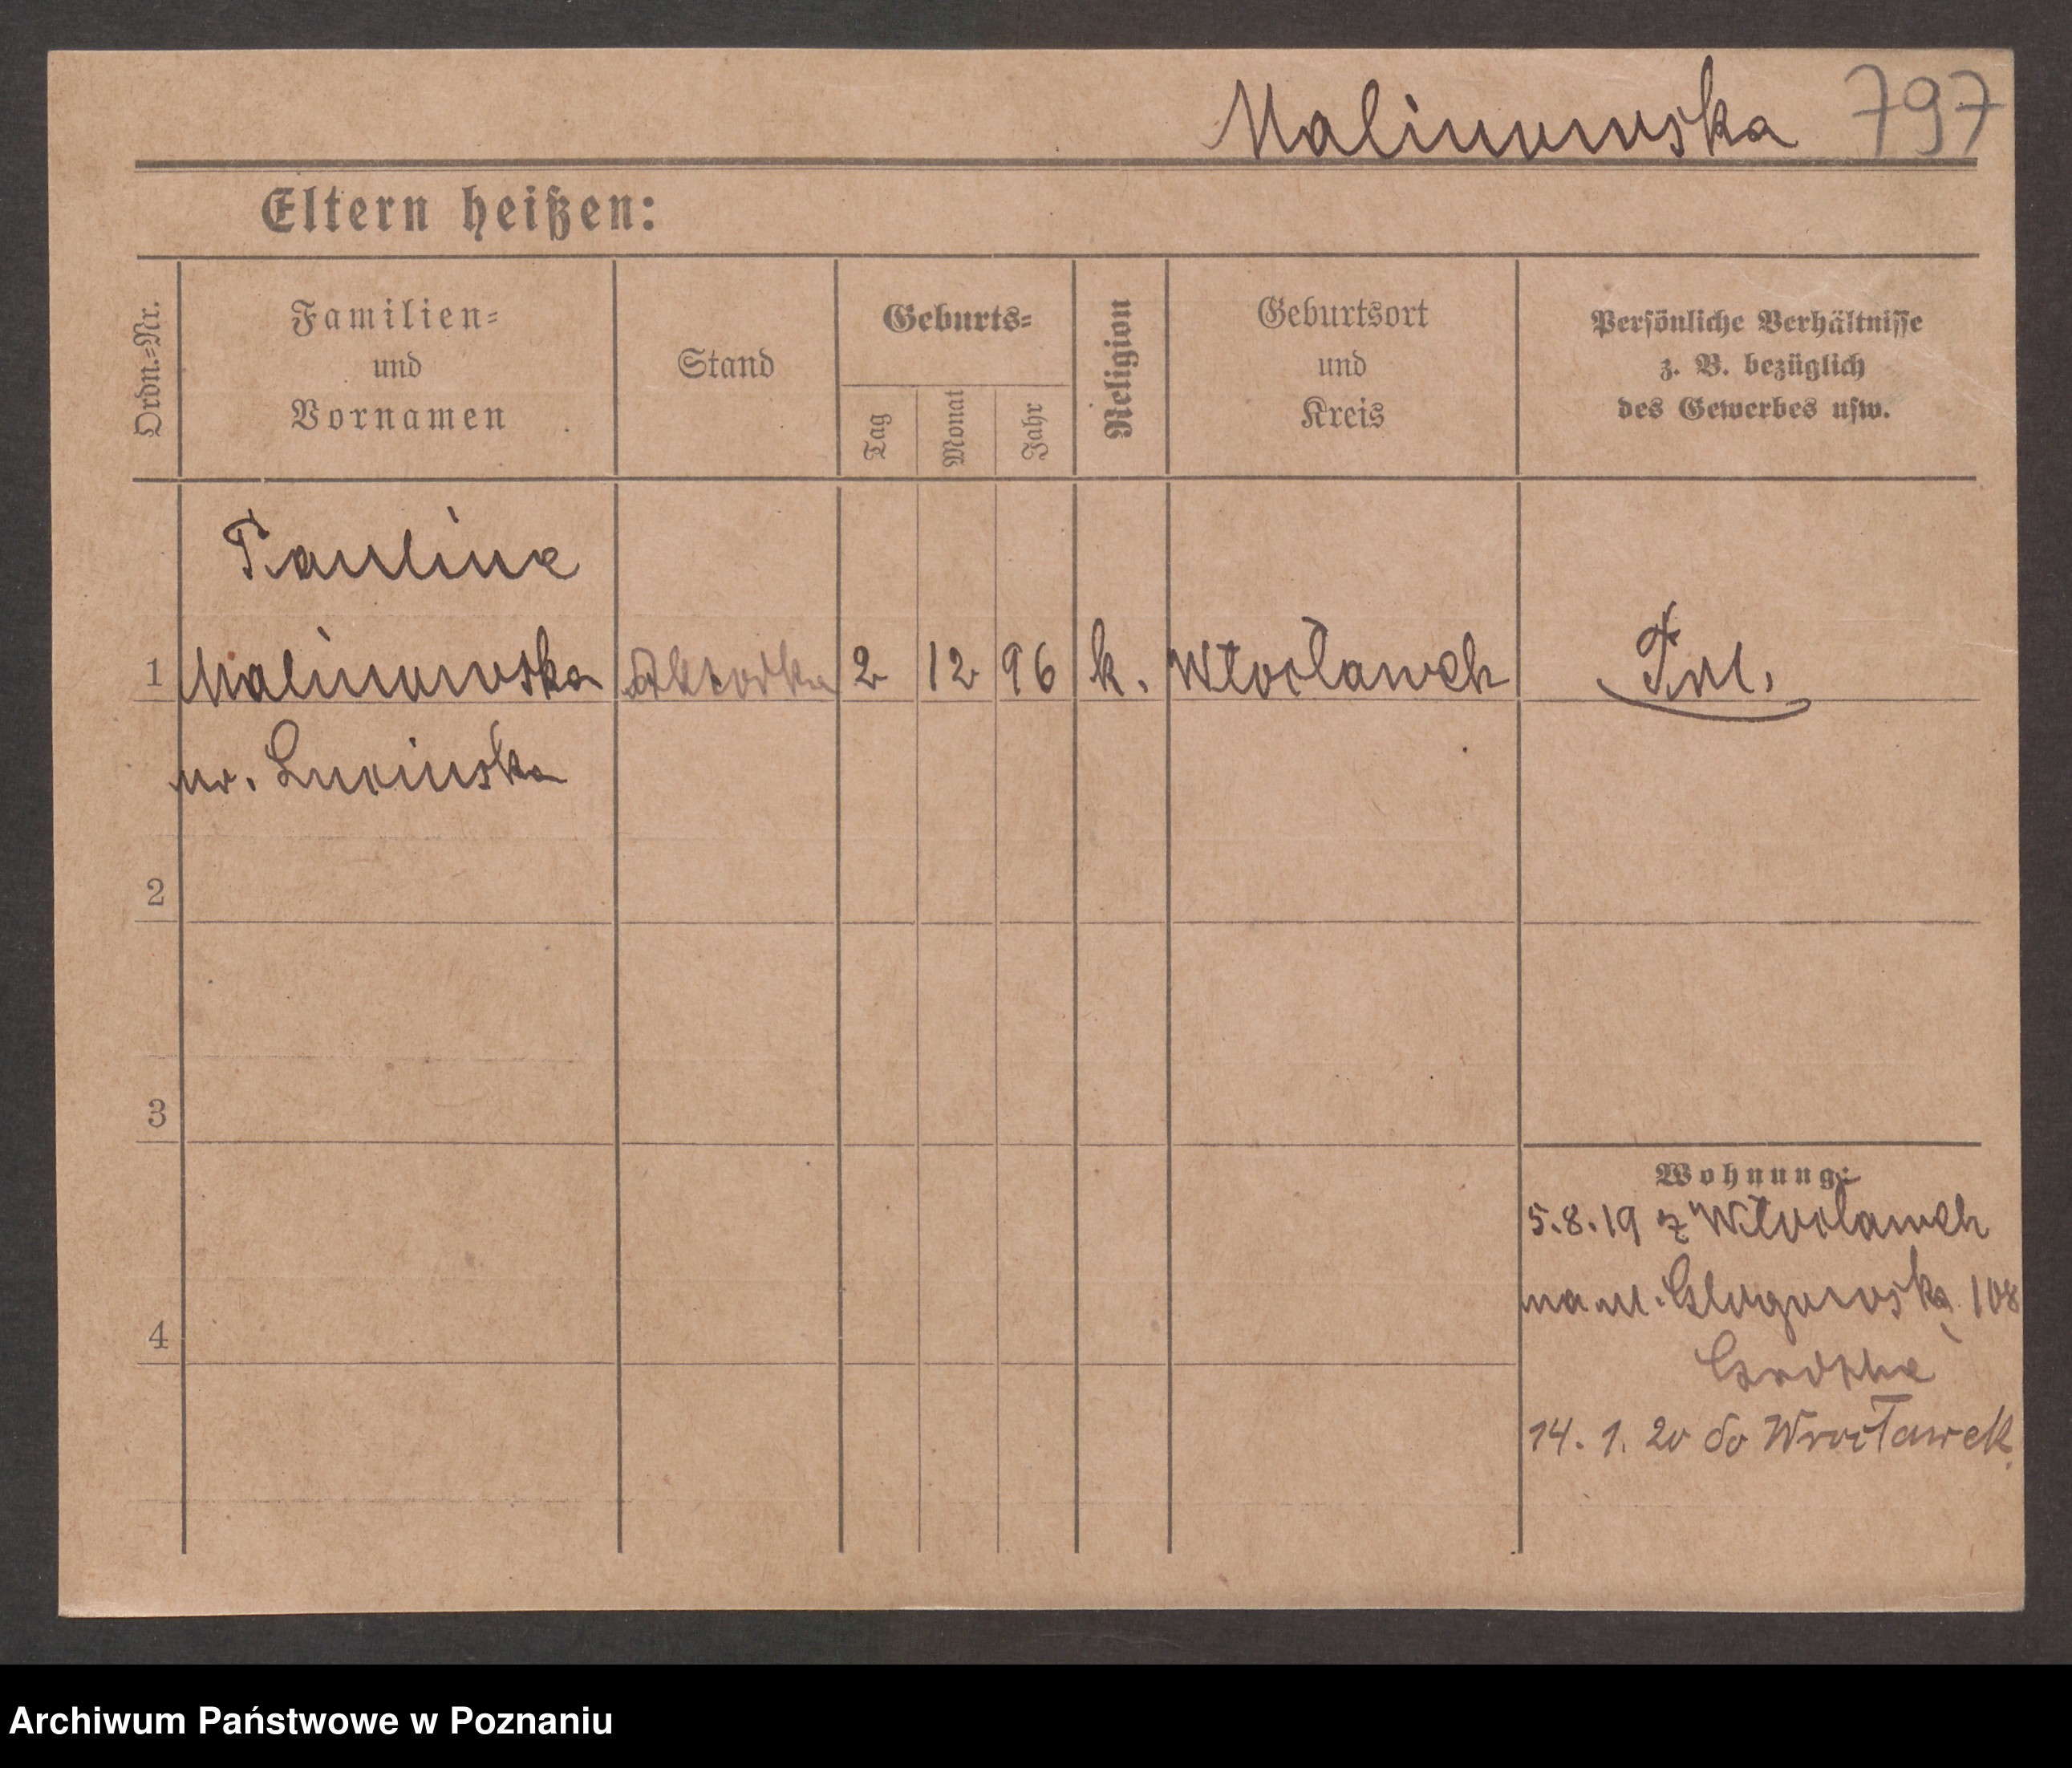 Malinowska 797
Eltern heißen:
Ordn.=Nr.
Familien=
und
Vornamen
Stand
Geburts=
Tag
Monat
Jahr
Religion
Geburtsort
und
Kreis
Persönliche Verhältnisse
z. B. bezüglich
des Gewerbes usw.
Paulina
1 Malinowska Aktorka 2 12 96 k. Włocławek
ur.
2
3
Wohnung:
5.8.19 z Włocławek
na ul. Glogowską 108
4
14. 1. 20 do Wrocławek.
Archiwum Państwowe w Poznaniu